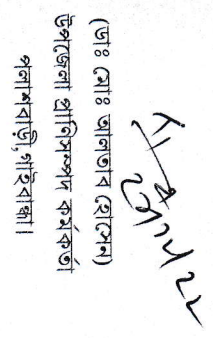 (ডাঃ মোঃ আলতাব হোসেন)
উপজেলা প্রানিসম্পদ কর্মকর্তা
পলাশবাড়ী,গাইবান্ধা।